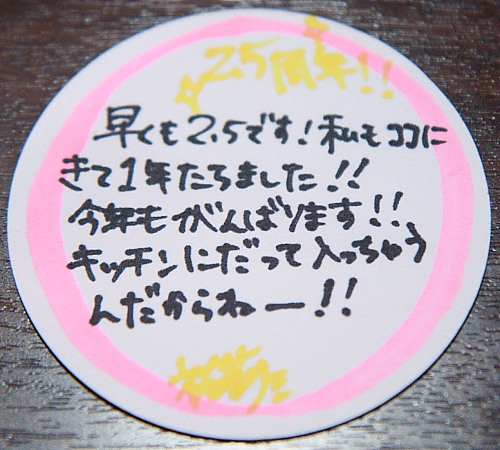 2.5周年!!
早くも2.5です!私もココに
きて1年たちました!!
今年もがんばります!!
キッチンにだって入っちゃう
んだからねー!!